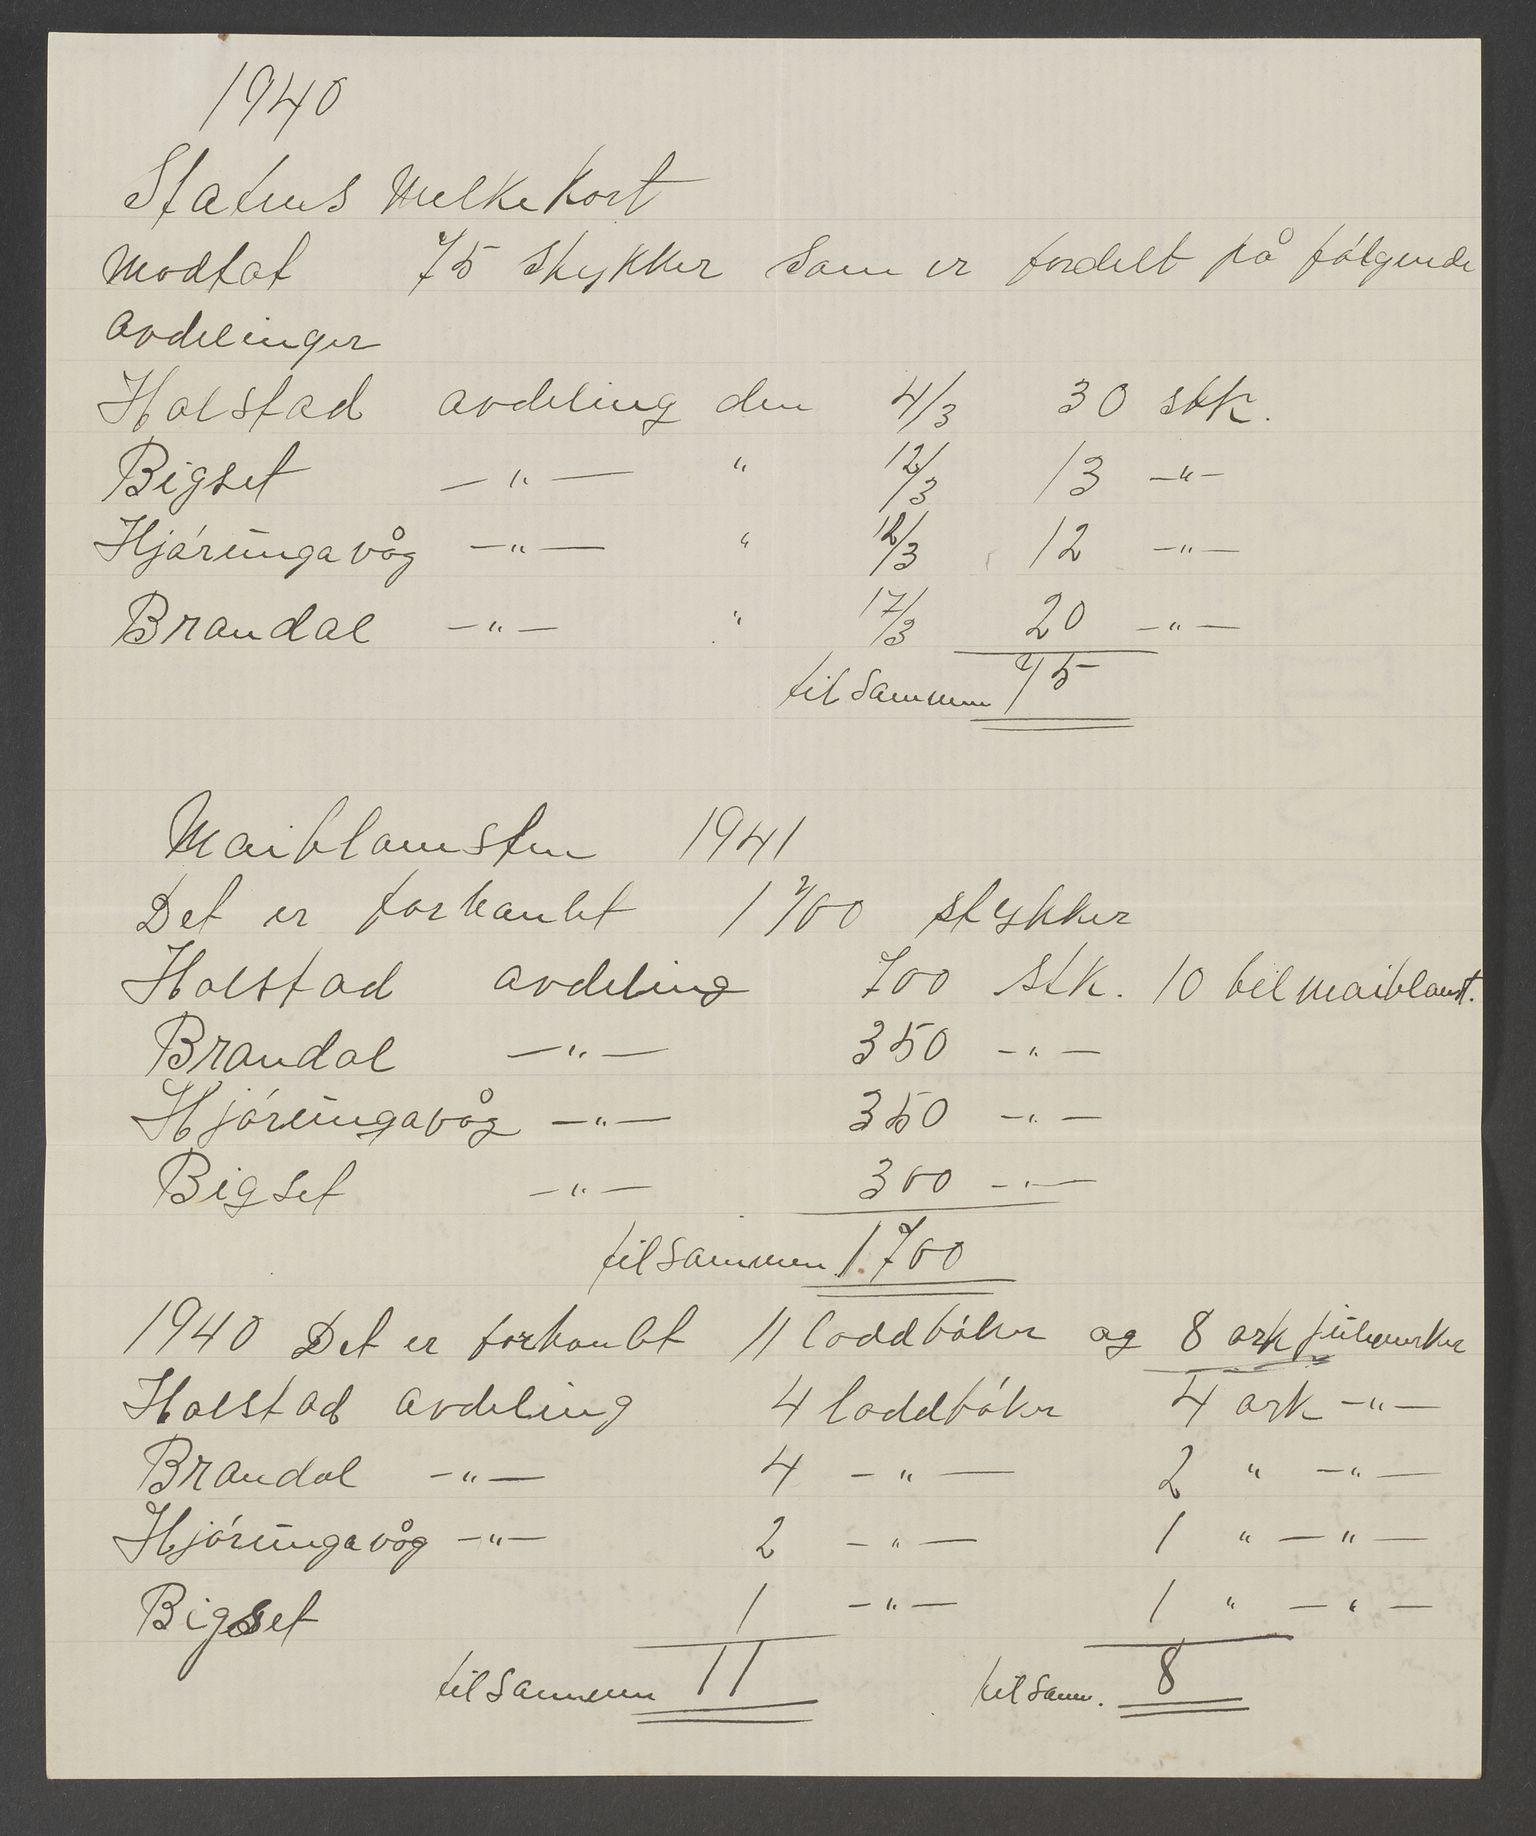 1940
Statens Melkekort
Modtat 75 stykker som er fordelt på følgende
avdelinger
Holstad avdeling den 4/3 30 stk.
Bigset —"— " 12/3 13 —"—
Hjørungavåg —"— " 12/3 12 —"—
Brandal —"— " 17/3 20 —"—
tilsammen 75
Maiblomsten 1941
Det er forhanlet 1700 stykker
Holstad avdeling 700 stk. 10 bilmaiblomst.
Brandal —"— 350 —"—
Hjørungavåg —"— 350 —"—
Bigset —"— 300 —"—
tilsammen 1.700
1940 Det er forhanlet 11 loddbøker og 8 ark julemerker
Holstad avdeling 4 loddbøker 4 ark —"—
Brandal —"— 4 —"— 2 " —"—
Hjørungavåg —"— 2 —"— 1 " —"—
Bigset 1 —"— 1 " —"—
tilsammen 11 tilsam. 8